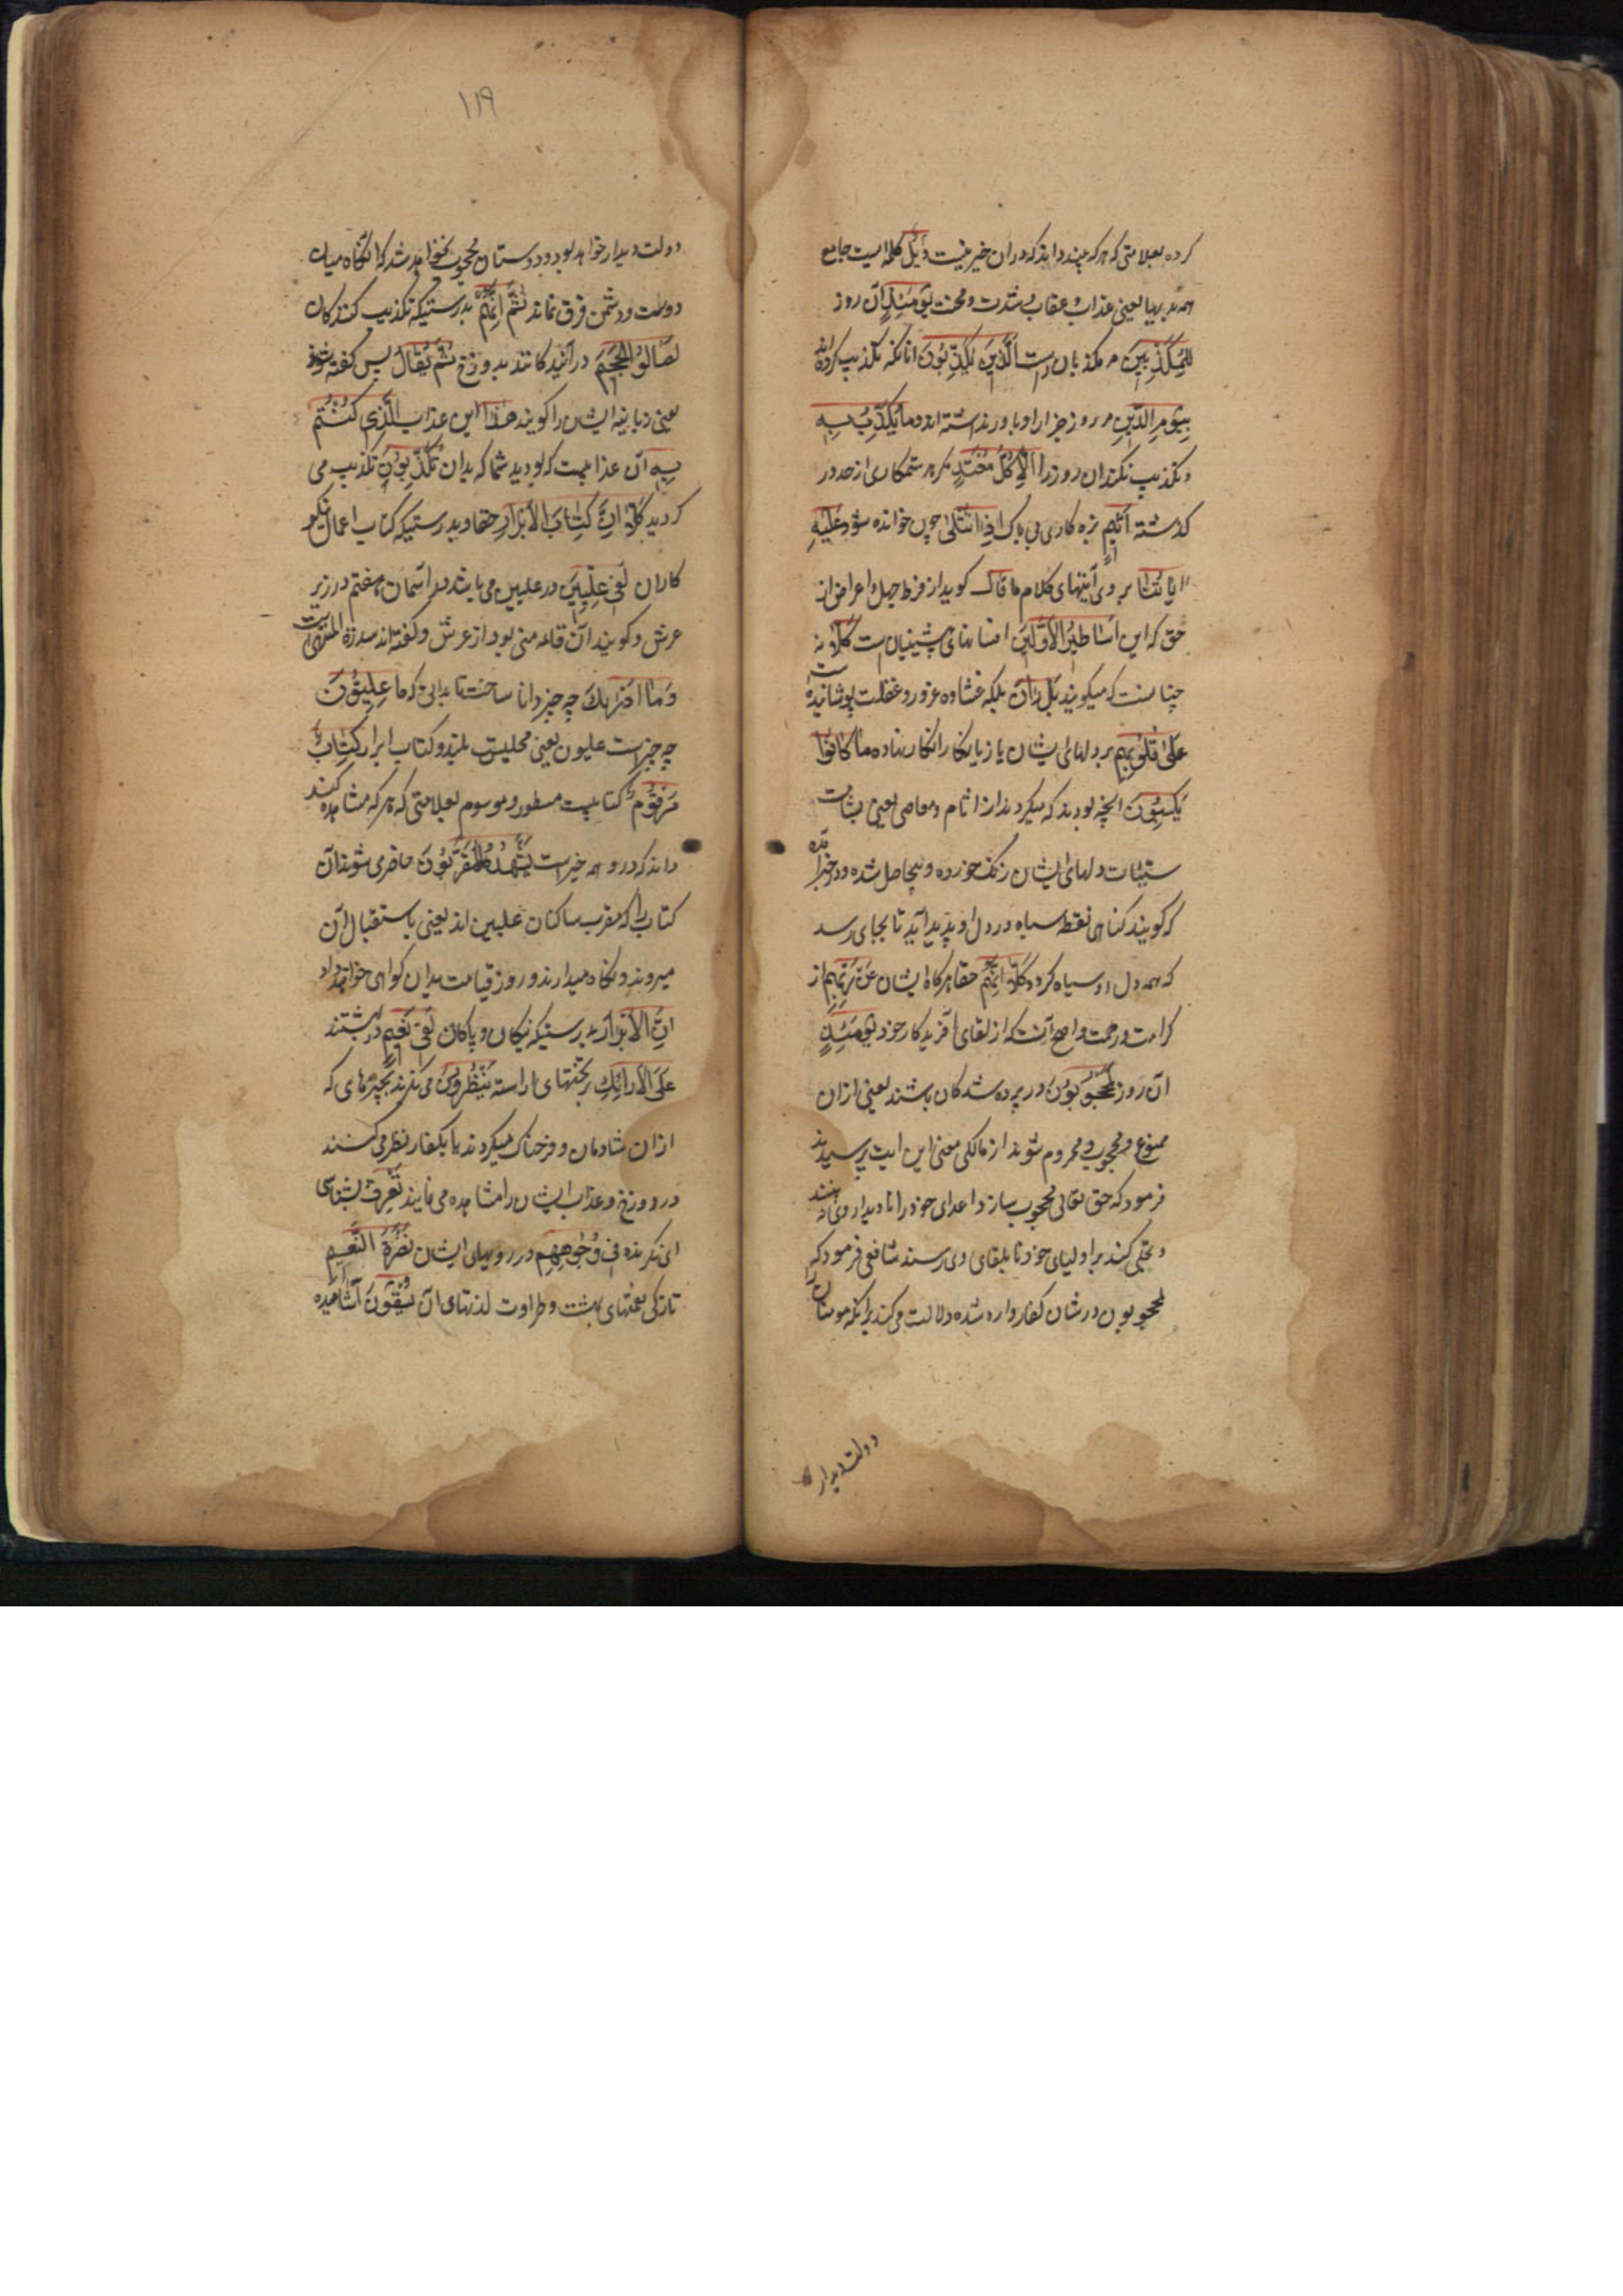 کرده بعلامتی که هرکه بیند داند که دران خیر نیست ویل کلمه ایست جامع
همه بدیها یعنی عذاب و عقاب و شدت و محنت یومئذ آن روز
للمکذبین مر مکذبان راست الذین یکذبون آنانکه تکذیب کرده اند
بیوم الدین مر روز جزا را و باور نداشته اند وما یکذب به
و تکذیب نکند آن روز را الا کل معتد مگر هر ستمکاری از حد در
گذشته اثیم بزه کاری بی باک اذا تتلی چون خوانده شود علیه
آیاتنا بر وی آیتهای کلام ما قال گوید از فرط جهل و اعراض از
حق که این اساطیر الاولین افسانهای پیشینیان است کلا نه
چنانست که میگویند بل ران بلکه غشاوه غرور و غفلت پوشانیده است
علی قلوبهم بر دلهای ایشان یا زیانکار انکار نهاده ما کانوا
یکسبون آنچه بودند که میکردند از اثام و معاصی یعنی بشامت
سیئات دلهای ایشان زنگ خورده و بیحاصل شده و در خبر آمده
که گویند گناهی نقطه سیاه در دل او پدید آید تا بجای رسد
که همه دل او سیاه گردد کلا انهم حقا هرگاه ایشان عن ربهم از
کرامت و رحمت و اصح آنست که از لقای آفریدگار خود یومئذ
آن روز لمحجوبون در پرده شدگان باشند یعنی ازان
ممنوع و محجوب و محروم شوند از مالکی معنی این آیت پرسیدند
فرمود که حق تعالی محجوب سازد اعدای خود را تا دیدار وی نه بینند
و تجلی کند بر اولیای خود تا بلقای وی رسند شافعی فرمود که
لمحجوبون در شان کفار وارد شده دلالت میکند برانکه مومنان را
دولت دیدار
۱۱۹
دولت دیدار خواهد بود و دوستان محجوب نخواهد شد که آنگاه میان
دوست و دشمن فرق نماند ثم انهم بدرستیکه تکذیب کنندگان
لصالوا الجحیم درآیندگانند بدوزخ ثم یقال پس گفته شود
یعنی زبانیه ایشان را گویند هذا این عذاب الذی کنتم
به آن عذابیست که بودید شما که بدان تکذبون تکذیب می
کردید کلا ان کتاب الابرار حقا و بدرستیکه کتاب اعمال نیکو
کاران لفی علیین در علیین می باشد در آسمان هفتم در زیر
عرش و گویند آن قاعده منی بود از عرش و گفته اند سدرة المنتهی است
وما ادریک چه چیز دانا ساخت تا بدانی که ما علیون
چه چیزست علیون یعنی محلیست بلند و کتاب ابرار کتاب
مرقوم کتابیست مسطور و موسوم بعلامتی که هرکه مشاهده کند
داند که درو همه خیر است یشهده المقربون حاضر می شوند آن
کتاب را که مقرب ساکنان علیین اند یعنی باستقبال آن
میروند و نگاه میدارند و روز قیامت بدان گواهی خواهند داد
ان الابرار بدرستیکه نیکان و پاکان لفی نعیم در بهشتند
علی الارائک بر تختهای آراسته ینظرون می نگرند بچیزهای که
ازان شادمان و فرحناک میگردند یا بکفار نظر می کنند
در دوزخ و عذاب ایشان را مشاهده می نمایند تعرف بشناسی
ای نگرنده فی وجوههم در رویهای ایشان نضرة النعیم
تازگی نعمتهای بهشت و طراوت لذتهای آن یسقون آشامیده